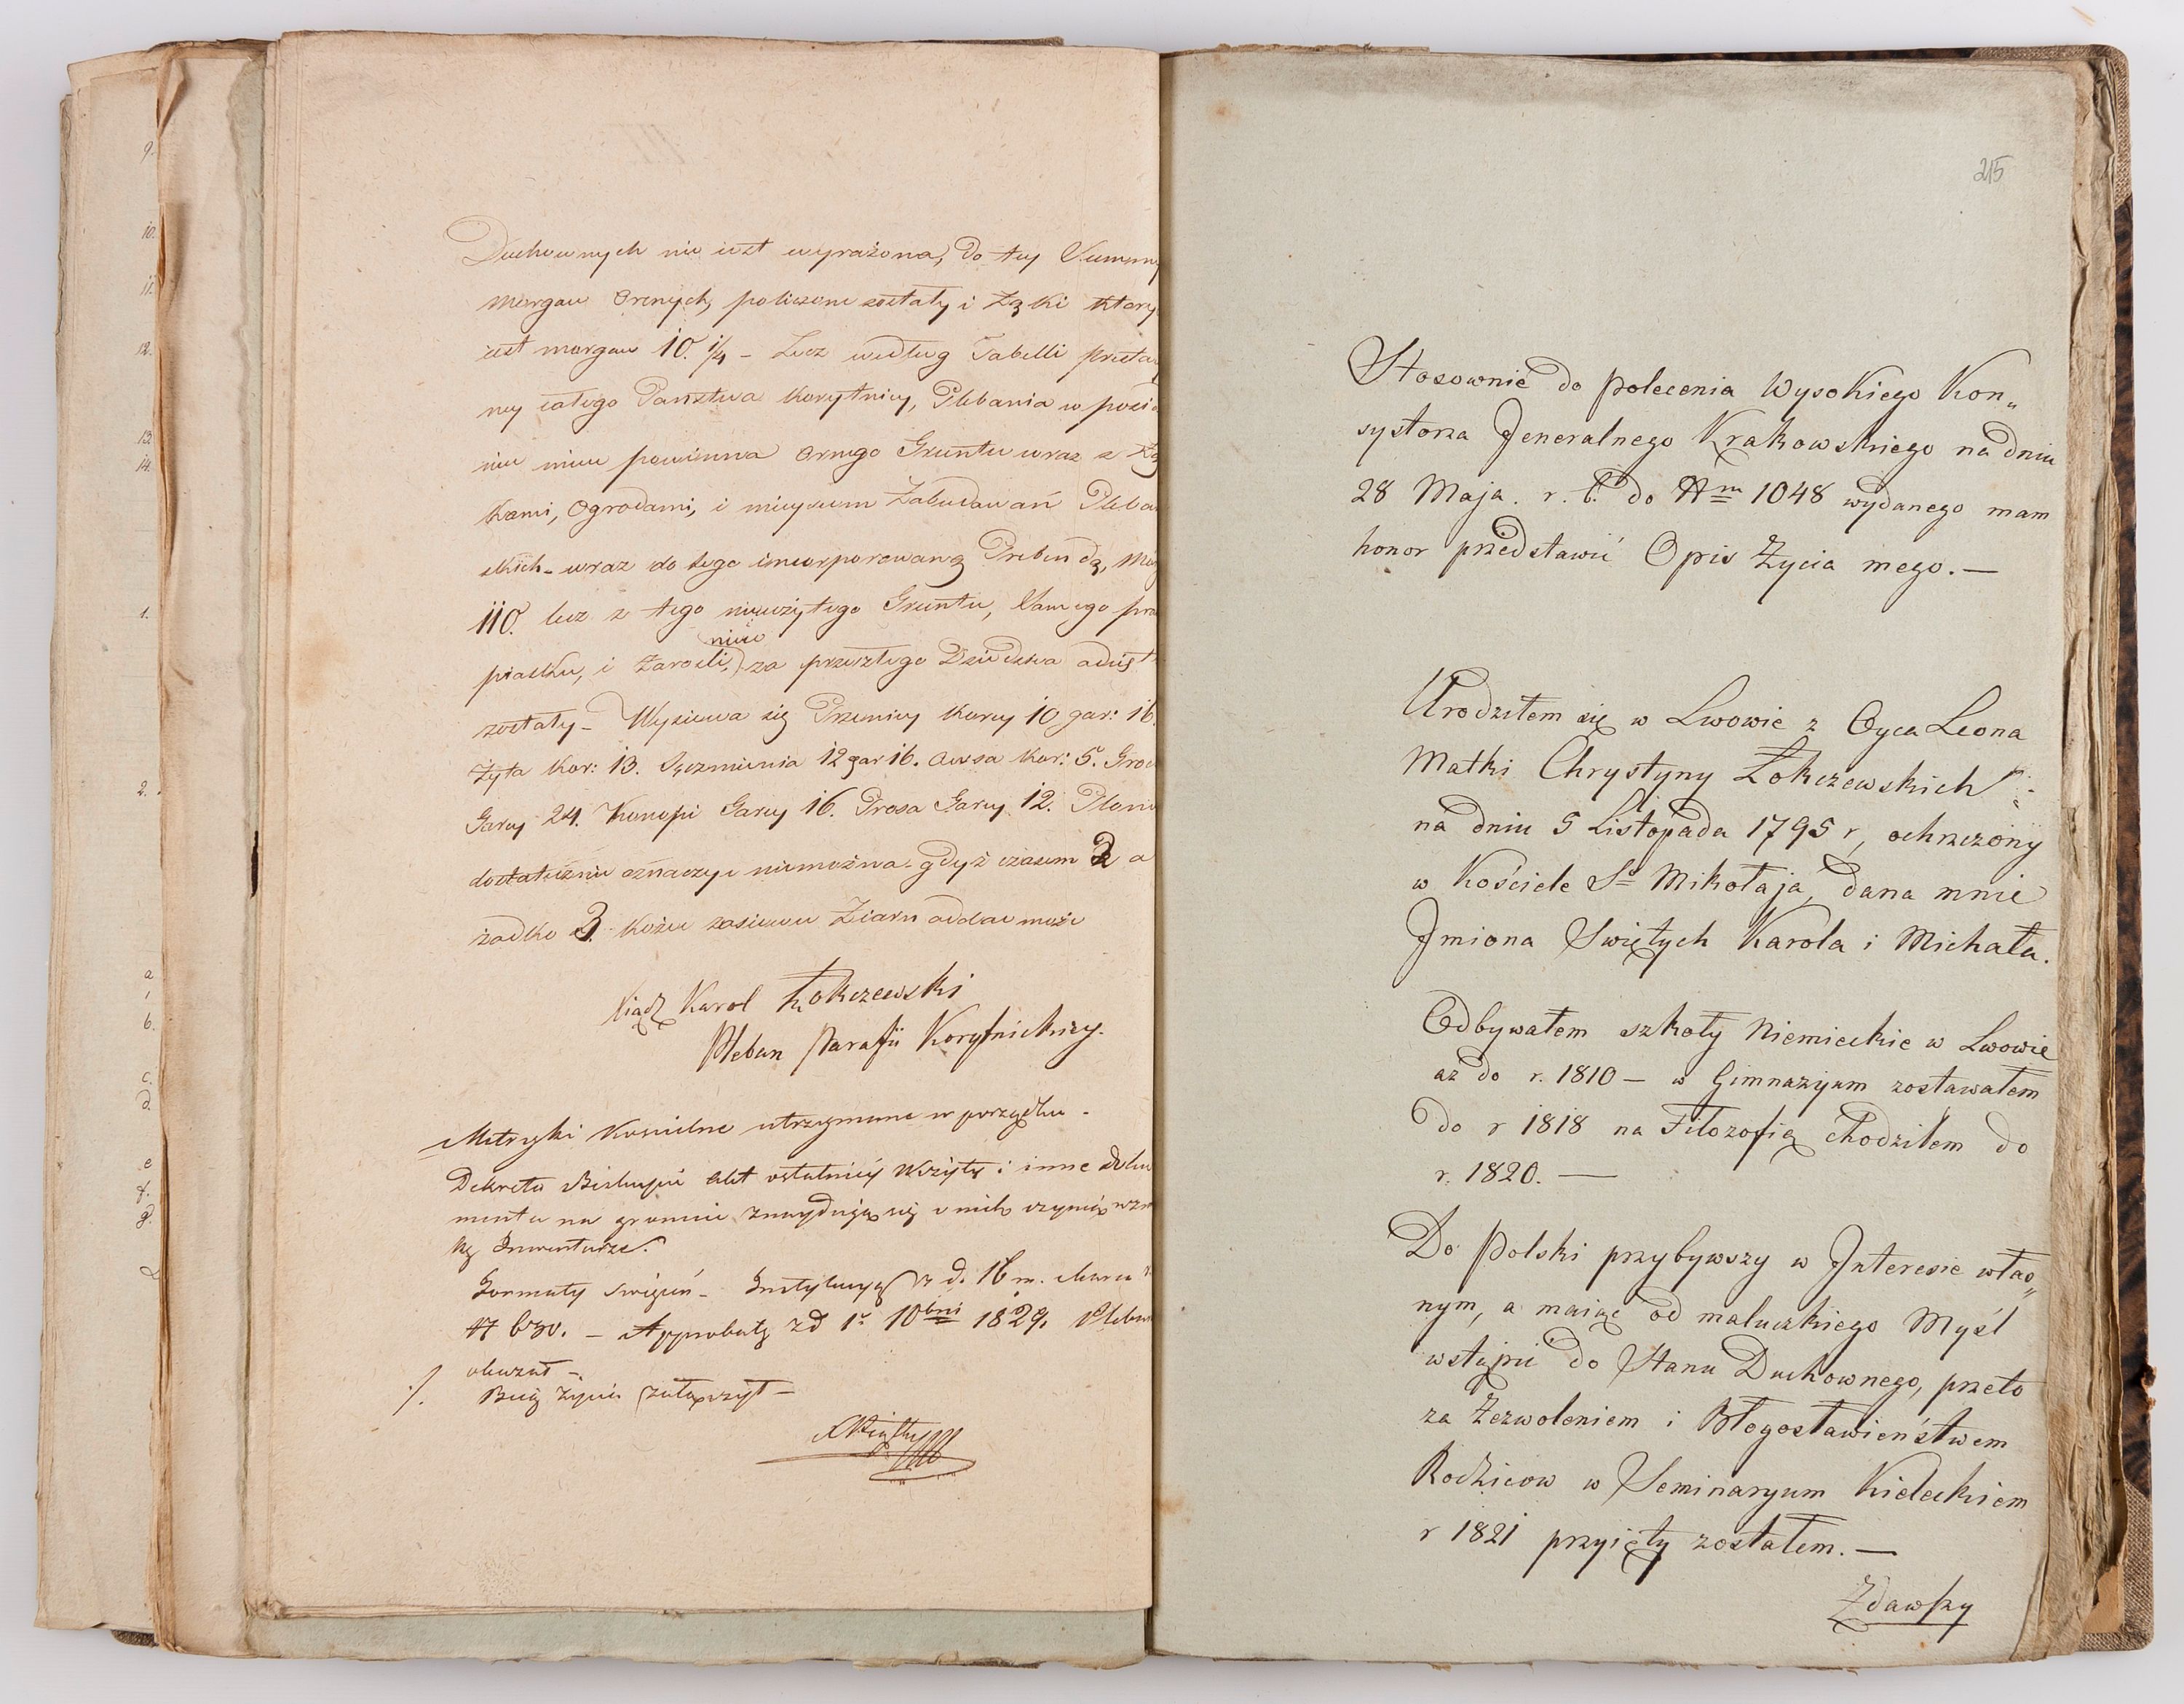 Duchownych nie iest wyrażona, do tey Summy
morgow Ornych, policzone zostały i Łąki ktory
iest morgow 10. 1/4 – Lecz według Tabelli
ney całego Państwa Korytnicy, Plebania w
mieć powinna Ornego Gruntu wraz z
kami, Ogrodami, i mieyscem Zabudowań
skich – wraz do tego incorporowaną Prebendą,
110. lecz z tego nieużytego Gruntu, samego
niwo
piasku, i Zarosli, za przeszłego Dziedzica
zostały – Wysiewa się Przenicy Korcy 10 gar: 16.
Żyta Kor: 13. Jęczmienia 12 gar 16. Owsa Kor: 5.
Garcy 24. Konopi Garcy 16. Prosa Garcy 12.
dostatecznie oznaczyć niemożna gdyż czasem 2 a
rzadko 3. zasiewu Ziarn oddać może
Xiądz Karol Łokczewski
Pleban Parafii Korytnickiey.
Metryki Koscielne utrzymane w porządku –
Dekreta Biskupie Akt ostatniey Wizyty i inne
menta na gruncie znayduią się o nich czynią
kę Inwentarze.
Formaty Swięceń – Instytucyą z d. 16 m. Marca
N 630. – Approbatę z d 1. 10bris 1829. Pleban
okazał –
/. Bieg Życia załączył –
215
Stosownie do polecenia Wysokiego Kon„
systorza Jeneralnego Krakowskiego na dniu
28 Maja. r. b. do Nm 1048 wydanego mam
honor przedstawić Opis Życia mego. —
Urodziłem się w Lwowie z Oyca Leona
Matki Chrystyny Łokczewskich
na dniu 5 Listopada 1795 r, ochrzczony
w Kościele So Mikołaja, dana mnie
Jmiona Swiętych Karola i Michała.
Odbywałem szkoły Niemieckie w Lwowie
az do r. 1810 — w Gimnazyum zostawałem
do r 1818 na Filozofią chodziłem do
r. 1820. —
Do Polski przybywszy w Jnteresie włas„
nym, a maiąc od maluczkiego Myśl
wstąpić do Stanu Duchownego, przeto
za Zezwoleniem i Błogosławieństwem
Rodzicow w Seminaryum Kieleckiem
r 1821 przyięty zostałem. —
Zdawszy